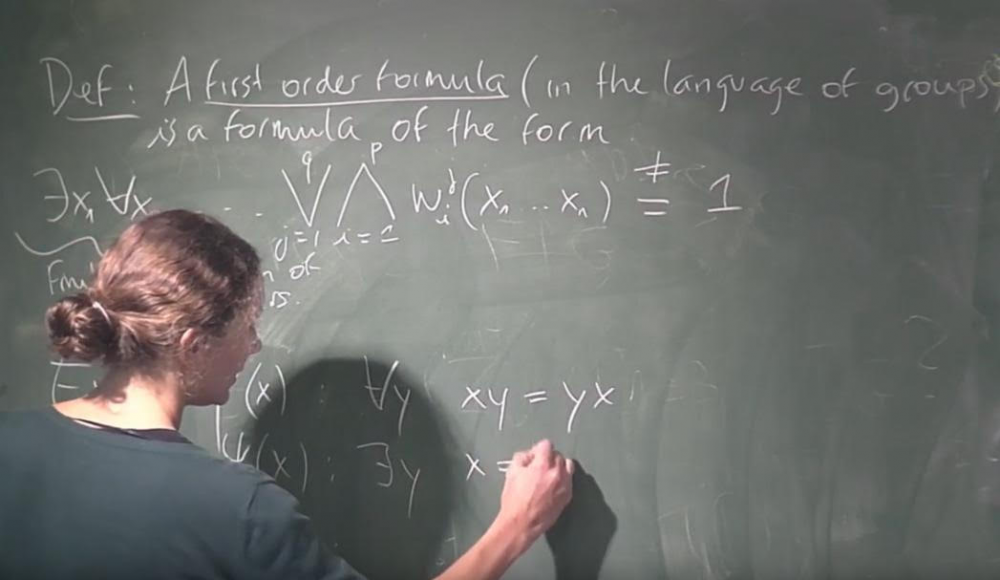 Def: A first order formula (in the language of groups)
is a formula of the form
∃x₁ ∀x ... ⋁_{j=1}^{q} ⋀_{i=1}^{p} w_i^j(x₁ .. xₙ) ≠= 1
of
(x): ∀y xy = yx
ψ(x): ∃y x =